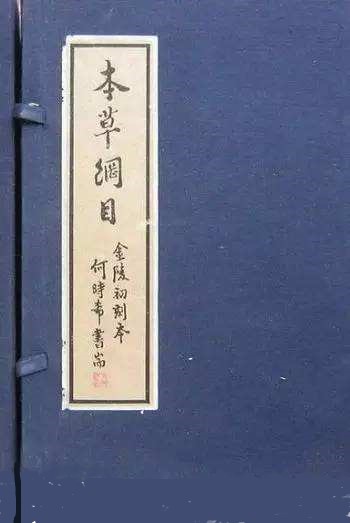 本草綱目
金陵初刻本
何時希書耑